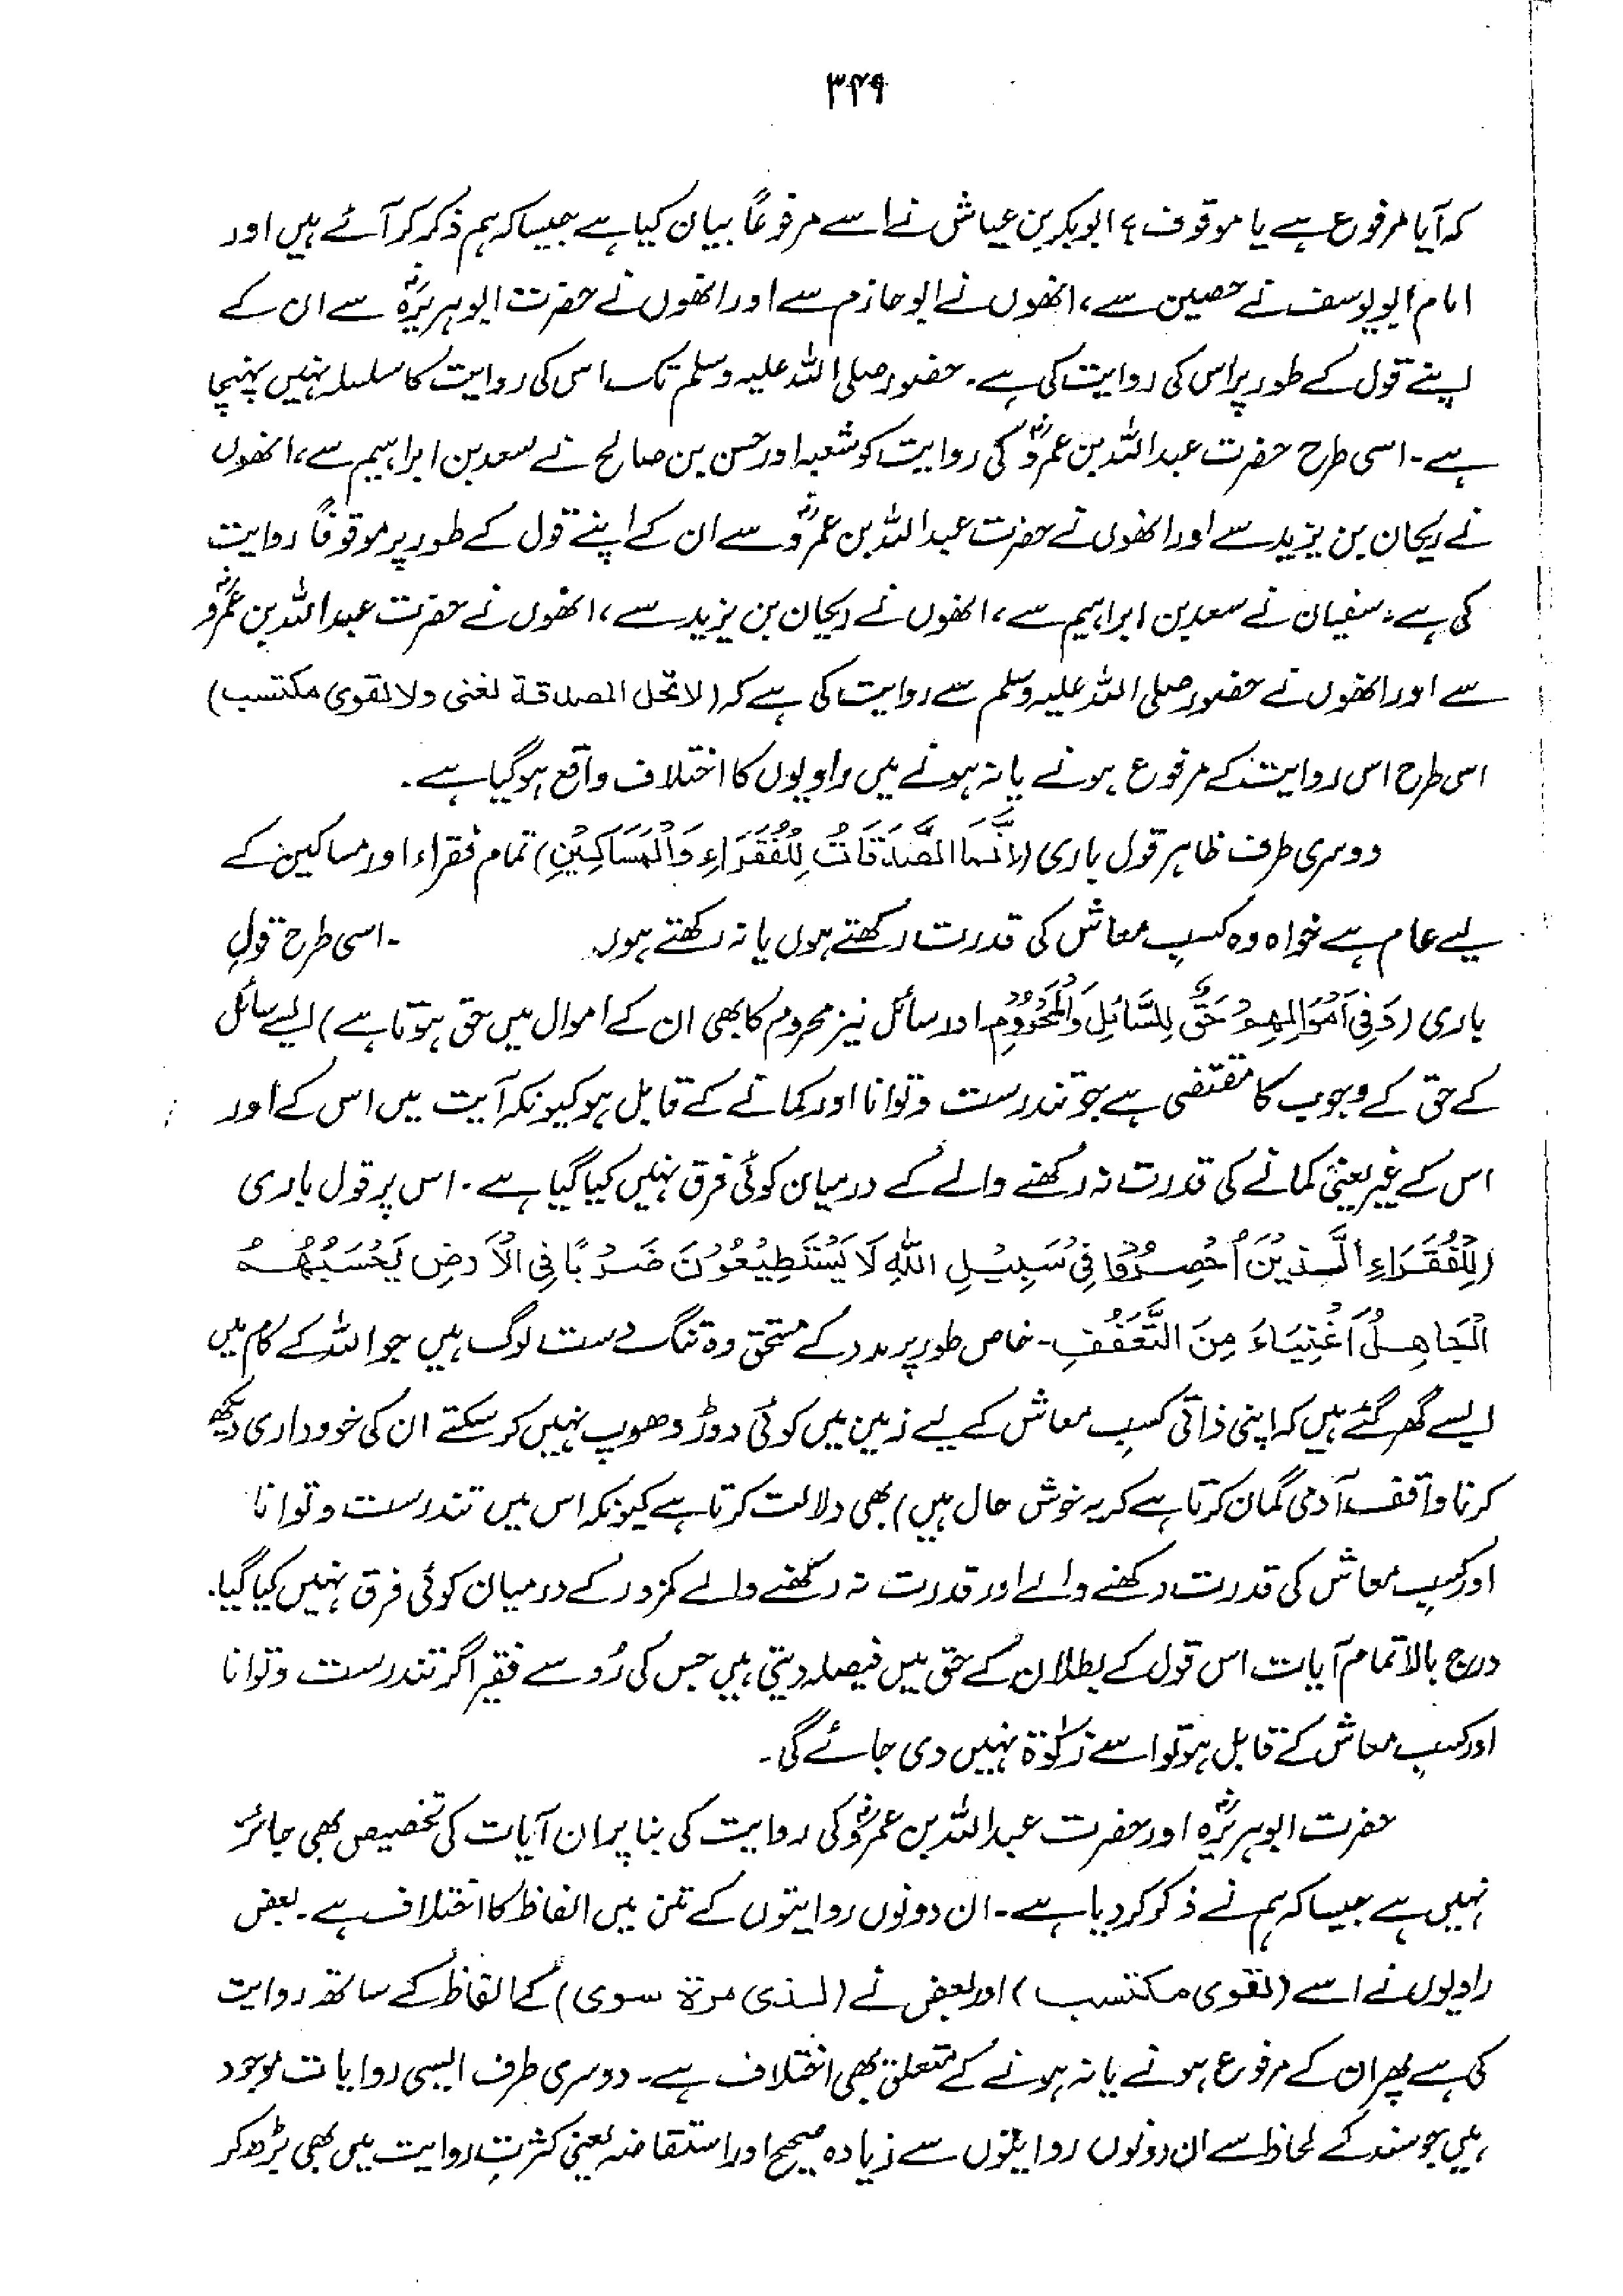 ۳۴۹
کہ آیا مرفوع ہے یا موقوف؟ ابوبکر بن عیاش نے اسے مرفوعاً بیان کیا ہے جیسا کہ ہم ذکر کر آئے ہیں اور
امام ابو یوسف نے حصین سے، انھوں نے ابو حازم سے اور انھوں نے حضرت ابو ہریرہؓ سے ان کے
اپنے قول کے طور پر اس کی روایت کی ہے۔ حضور صلی اللہ علیہ وسلم تک اس کی روایت کا سلسلہ نہیں پہنچا
ہے۔ اسی طرح حضرت عبداللہ بن عمروؓ کی روایت کو شعبہ اور حسن بن صالح نے سعد بن ابراہیم سے، انھوں
نے ریحان بن یزید سے اور انھوں نے حضرت عبداللہ بن عمروؓ سے ان کے اپنے قول کے طور پر موقوفاً روایت
کی ہے۔ سفیان نے سعد بن ابراہیم سے، انھوں نے ریحان بن یزید سے، انھوں نے حضرت عبداللہ بن عمروؓ
سے اور انھوں نے حضور صلی اللہ علیہ وسلم سے روایت کی ہے کہ (لا تحل الصدقة لغنی ولا لقوی مکتسب)
اس طرح اس روایت کے مرفوع ہونے یا نہ ہونے میں راویوں کا اختلاف واقع ہو گیا ہے۔
دوسری طرف ظاہر قول باری (اِنَّمَا الصَّدَقَاتُ لِلْفُقَرَاءِ وَالْمَسَاكِيْنِ) تمام فقراء اور مساکین کے
لیے عام ہے خواہ وہ کسبِ معاش کی قدرت رکھتے ہوں یا نہ رکھتے ہوں ۔ اسی طرح قولِ
باری (وَفِیْ اَمْوَالِهِمْ حَقٌّ لِلسَّائِلِ وَالْمَحْرُوْمِ اور سائل نیز محروم کا بھی ان کے اموال میں حق ہوتا ہے) ایسے سائل
کے حق کے وجوب کا مقتضی ہے جو تندرست و توانا اور کمانے کے قابل ہو کیونکہ آیت میں اس کے اور
اس کے غیر یعنی کمانے کی قدرت نہ رکھنے والے کے درمیان کوئی فرق نہیں کیا گیا ہے۔ اس پر قول باری
(لِلْفُقَرَاءِ الَّذِيْنَ اُحْصِرُوْا فِیْ سَبِيْلِ اللّٰهِ لَا يَسْتَطِيْعُوْنَ ضَرْبًا فِی الْاَرْضِ يَحْسَبُهُمُ
الْجَاهِلُ اَغْنِيَاءَ مِنَ التَّعَفُّفِ۔ خاص طور پر مدد کے مستحق وہ تنگ دست لوگ ہیں جو اللہ کے کام میں
ایسے گھر گئے ہیں کہ اپنی ذاتی کسبِ معاش کے لیے زمین میں کوئی دوڑ دھوپ نہیں کر سکتے ان کی خودداری دیکھ
کر ناواقف آدمی گمان کرتا ہے کہ یہ خوش حال ہیں) بھی دلالت کرتا ہے کیونکہ اس میں تندرست و توانا
اور کسبِ معاش کی قدرت رکھنے والے اور قدرت نہ رکھنے والے کمزور کے درمیان کوئی فرق نہیں کیا گیا۔
درج بالا تمام آیات اس قول کے بطلان کے حق میں فیصلہ دیتی ہیں جس کی رُو سے فقیر اگر تندرست و توانا
اور کسبِ معاش کے قابل ہو تو اسے زکوٰۃ نہیں دی جائے گی۔
حضرت ابوہریرہؓ اور حضرت عبداللہ بن عمروؓ کی روایت کی بنا پر ان آیات کی تخصیص بھی جائز
نہیں ہے جیسا کہ ہم نے ذکر کر دیا ہے۔ ان دونوں روایتوں کے متن میں الفاظ کا اختلاف ہے۔ بعض
راویوں نے اسے (لقوی مکتسب) اور بعض نے (لذی مرة سوی) کے الفاظ کے ساتھ روایت
کی ہے پھر ان کے مرفوع ہونے یا نہ ہونے کے متعلق بھی اختلاف ہے۔ دوسری طرف ایسی روایات موجود
ہیں جو سند کے لحاظ سے ان دونوں روایتوں سے زیادہ صحیح اور استفاضہ یعنی کثرتِ روایت میں بھی بڑھ کر